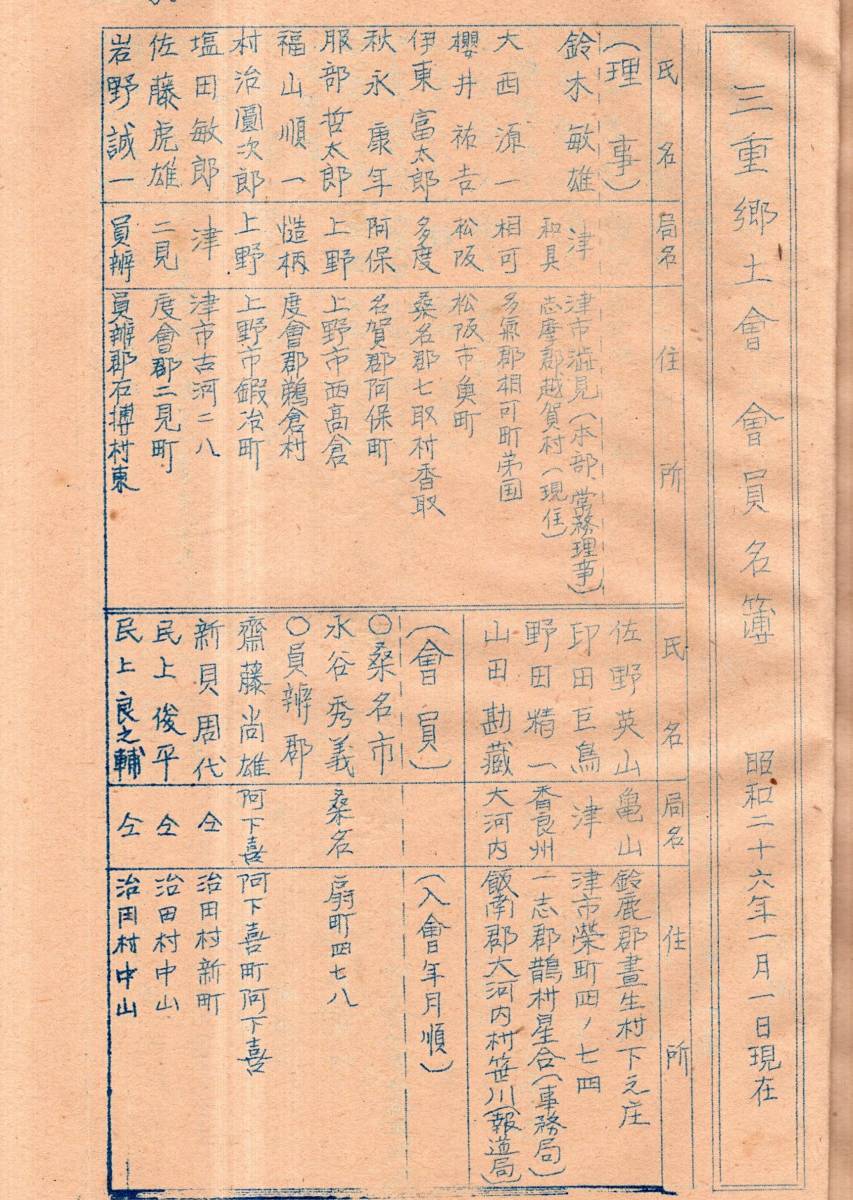 三重郷土會 會員名簿 昭和二十六年一月一日現在
氏名 局名 住所
(理事)
鈴木敏雄 津 津市澁見(本部、常務理事)
和具 志摩郡越賀村(現住)
大西源一 相可 多氣郡相可町弟国
櫻井祐吉 松阪 松阪市魚町
伊東富太郎 多度 桑名郡七取村香取
秋永康年 阿保 名賀郡阿保町
服部哲太郎 上野 上野市西高倉
福山順一 慥柄 度會郡鵜倉村
村治圓次郎 上野 上野市鍛冶町
塩田敏郎 津 津市古河二八
佐藤虎雄 二見 度會郡二見町
岩野誠一 員辨 員辨郡石搏村東
氏名 局名 住所
佐野英山 亀山 鈴鹿郡晝生村下之庄
印田巨鳥 津 津市榮町四ノ七四
野田精一 香良州 一志郡鵲村星合(事務局)
山田勘藏 大河内 飯南郡大河内村笹川(報道局)
(會員) (入會年月順)
○桑名市
水谷秀義 桑名 扇町四七八
○員辨郡
齋藤尚雄 阿下喜 阿下喜町阿下喜
新貝周代 仝 治田村新町
民上俊平 仝 治田村中山
民上良之輔 仝 治田村中山